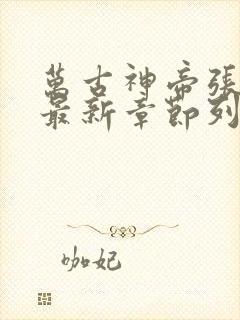 萬古神帝張
最新章節列
咖妃